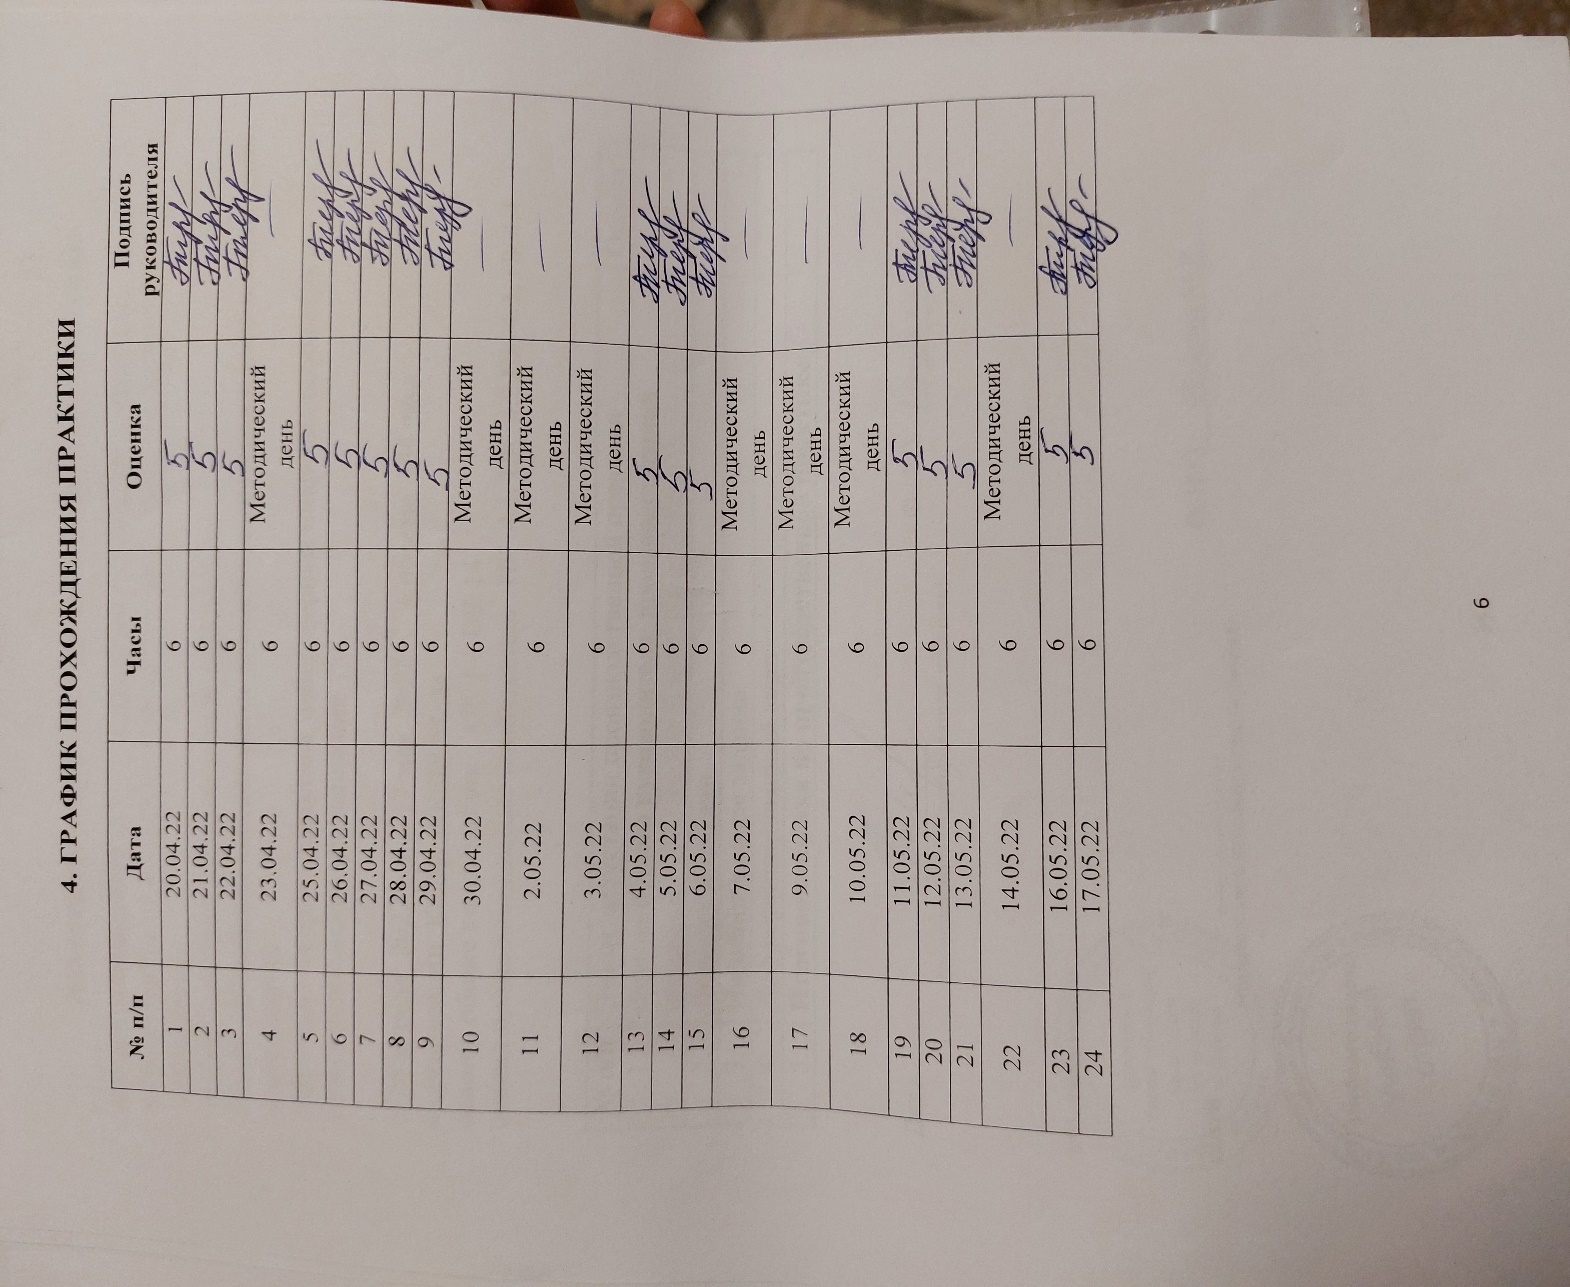 4. ГРАФИК ПРОХОЖДЕНИЯ ПРАКТИКИ
№ п/п Дата Часы Оценка Подпись руководителя
1 20.04.22 6 5
2 21.04.22 6 5
3 22.04.22 6 5
4 23.04.22 6 Методический день —
5 25.04.22 6 5
6 26.04.22 6 5
7 27.04.22 6 5
8 28.04.22 6 5
9 29.04.22 6 5
10 30.04.22 6 Методический день —
11 2.05.22 6 Методический день —
12 3.05.22 6 Методический день —
13 4.05.22 6 5
14 5.05.22 6 5
15 6.05.22 6 5
16 7.05.22 6 Методический день —
17 9.05.22 6 Методический день —
18 10.05.22 6 Методический день —
19 11.05.22 6 5
20 12.05.22 6 5
21 13.05.22 6 5
22 14.05.22 6 Методический день —
23 16.05.22 6 5
24 17.05.22 6 5
6